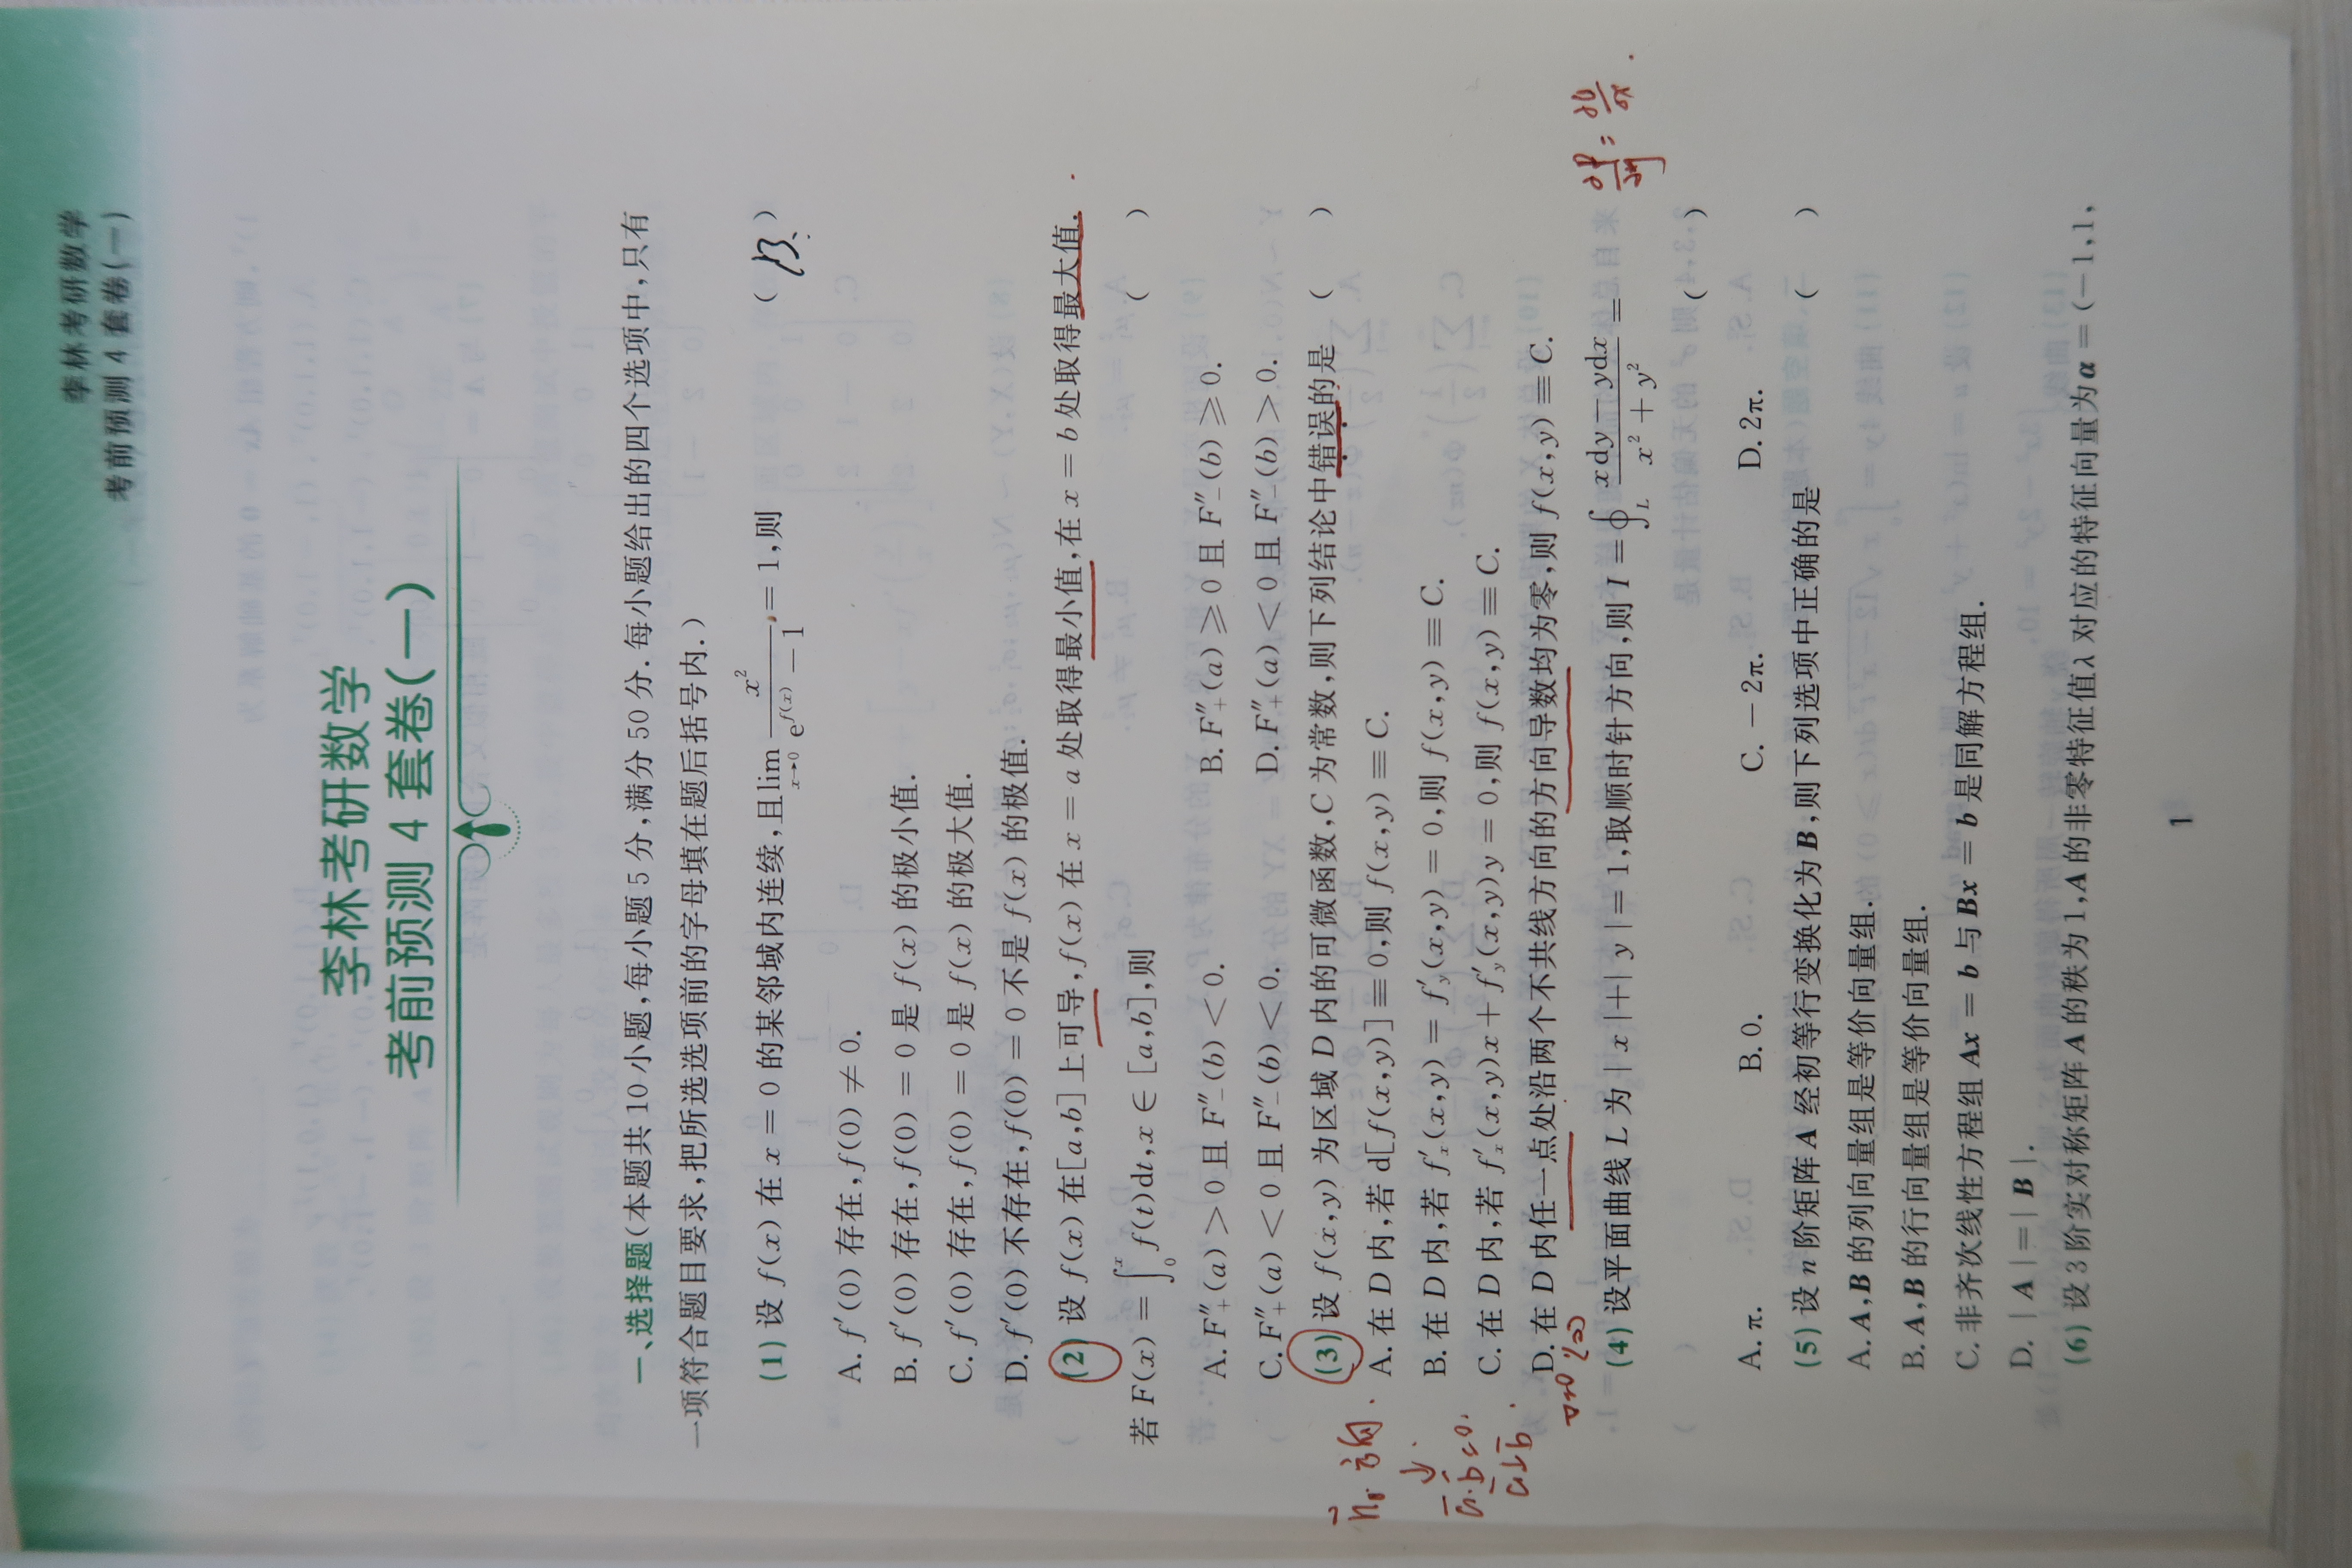 李林考研数学
考前预测 4 套卷(一)
李林考研数学
考前预测 4 套卷(一)
一、选择题(本题共 10 小题,每小题 5 分,满分 50 分. 每小题给出的四个选项中,只有
一项符合题目要求,把所选选项前的字母填在题后括号内.)
(1) 设 f(x) 在 x = 0 的某邻域内连续,且 lim_{x→0} x²/(e^{f(x)} − 1) = 1,则 ( B. )
A. f′(0) 存在,f(0) ≠ 0.
B. f′(0) 存在,f(0) = 0 是 f(x) 的极小值.
C. f′(0) 存在,f(0) = 0 是 f(x) 的极大值.
D. f′(0) 不存在,f(0) = 0 不是 f(x) 的极值.
(2) 设 f(x) 在[a,b] 上可导,f(x) 在 x = a 处取得最小值,在 x = b 处取得最大值.
若 F(x) = ∫₀ˣ f(t)dt,x ∈ [a,b],则 ( )
A. F″₊(a) > 0 且 F″₋(b) < 0. B. F″₊(a) ⩾ 0 且 F″₋(b) ⩾ 0.
C. F″₊(a) < 0 且 F″₋(b) < 0. D. F″₊(a) < 0 且 F″₋(b) > 0.
(3) 设 f(x,y) 为区域 D 内的可微函数,C 为常数,则下列结论中错误的是 ( )
A. 在 D 内,若 d[f(x,y)] ≡ 0,则 f(x,y) ≡ C.
B. 在 D 内,若 f′ₓ(x,y) = f′_y(x,y) = 0,则 f(x,y) ≡ C.
C. 在 D 内,若 f′ₓ(x,y)x + f′_y(x,y)y = 0,则 f(x,y) ≡ C.
D. 在 D 内任一点处沿两个不共线方向的方向导数均为零,则 f(x,y) ≡ C.
a·b=0.
a⊥b.
∂P/∂y = ∂Q/∂x .
(4) 设平面曲线 L 为 | x |+| y |= 1,取顺时针方向,则 I = ∮_L (xdy − ydx)/(x² + y²) =
( )
A. π. B. 0. C. − 2π. D. 2π.
(5) 设 n 阶矩阵 A 经初等行变换化为 B,则下列选项中正确的是 ( )
A. A,B 的列向量组是等价向量组.
B. A,B 的行向量组是等价向量组.
C. 非齐次线性方程组 Ax = b 与 Bx = b 是同解方程组.
D. | A |=| B |.
(6) 设 3 阶实对称矩阵 A 的秩为 1,A 的非零特征值 λ 对应的特征向量为 α = (− 1,1,
1